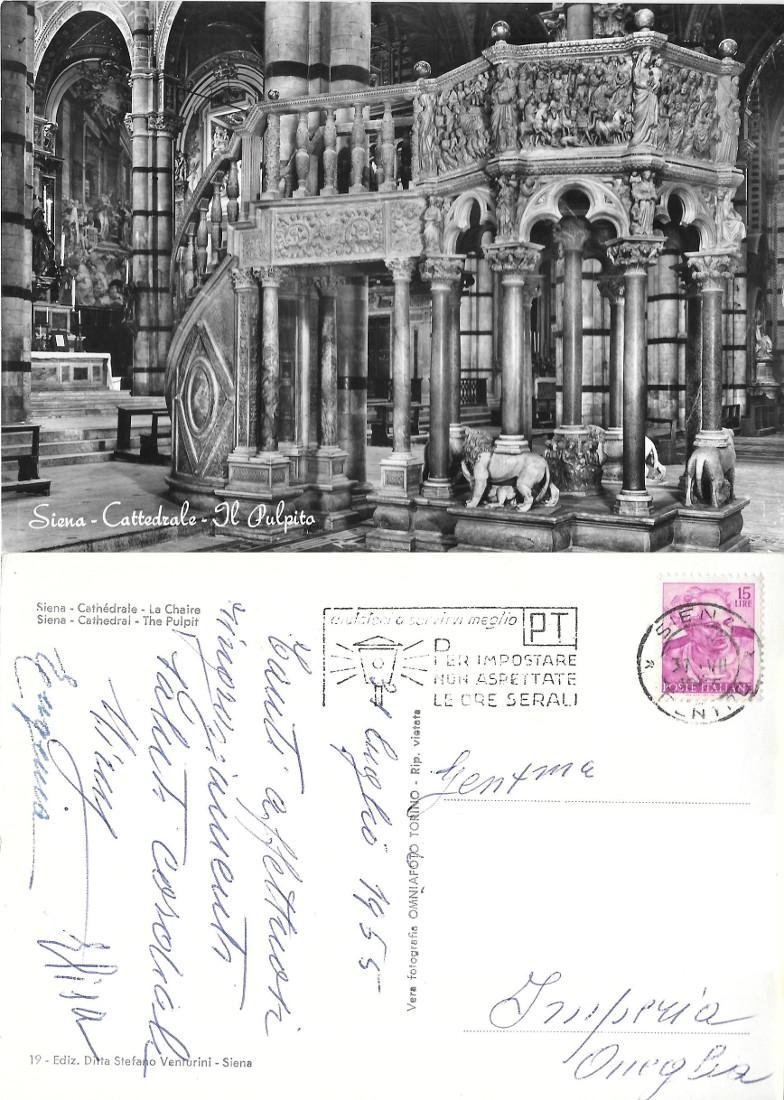 Siena - Cattedrale - Il Pulpito
Siena - Cathédrale - La Chaire
Siena - Cathedral - The Pulpit
aiutateci a servirvi meglio
PT
PER IMPOSTARE
NON ASPETTATE
LE ORE SERALI
15
LIRE
POSTE ITALIANE
SIENA
CENTRO
luglio 1955
Saluti affettuosi
ringraziamenti
saluti cordiali
Eugenia
Vera fotografia OMNIAFOTO TORINO - Rip. vietata
Gent.ma
Imperia
Oneglia
19 - Ediz. Ditta Stefano Venturini - Siena